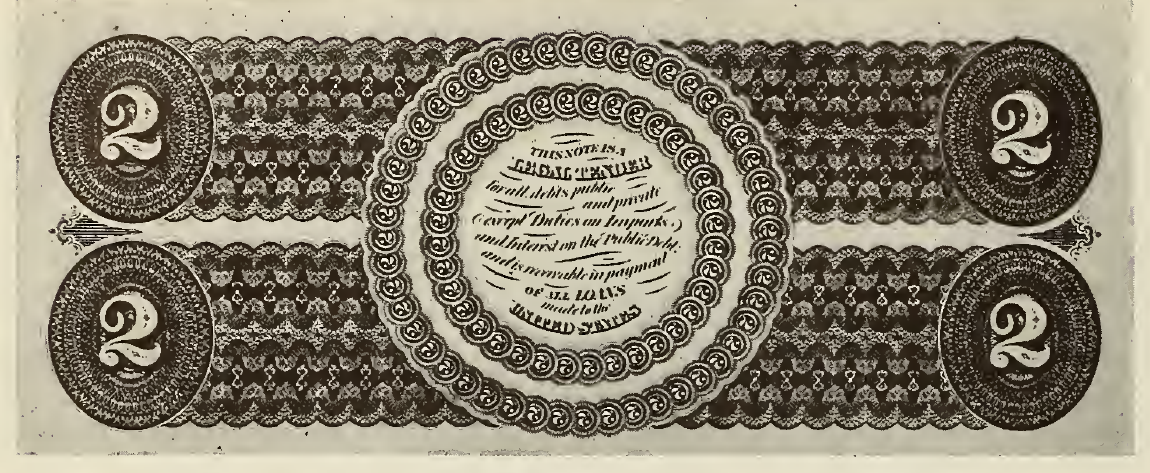 2
2
THIS NOTE IS A
LEGAL TENDER
for all debts public
and private
(except Duties on Imports,)
and Interest on the Public Debt,
and is receivable in payment
OF ALL LOANS
made to the
UNITED STATES
2
2